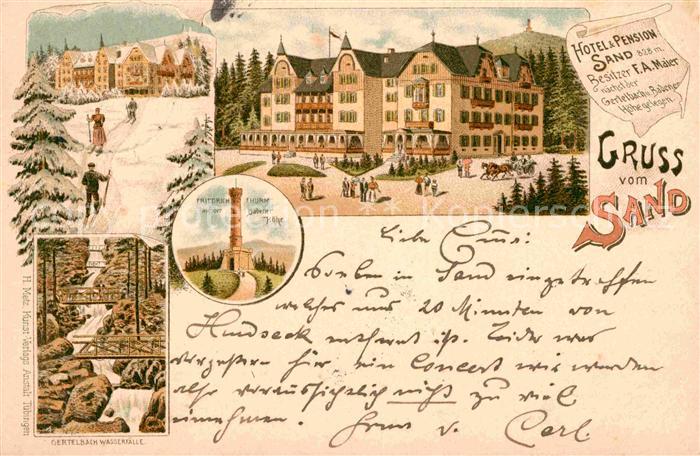 HOTEL & PENSION
SAND 828 m.
Besitzer F. A. Maier
nächst der
Gertelbach u. Badener
Höhe gelegen.
GRUSS
vom
SAND
FRIEDRICH THURM
auf der Badener
Höhe
GERTELBACH WASSERFÄLLE.
H. Metz Kunst-Verlags Anstalt Tübingen
Liebe
Soeben in Sand eingetroffen
welches uns 20 Minuten von
Hundseck entfernt ist. Leider war
vorgestern hier ein Concert wir werden
also voraussichtlich nicht zu viel
einnehmen. v. Carl.